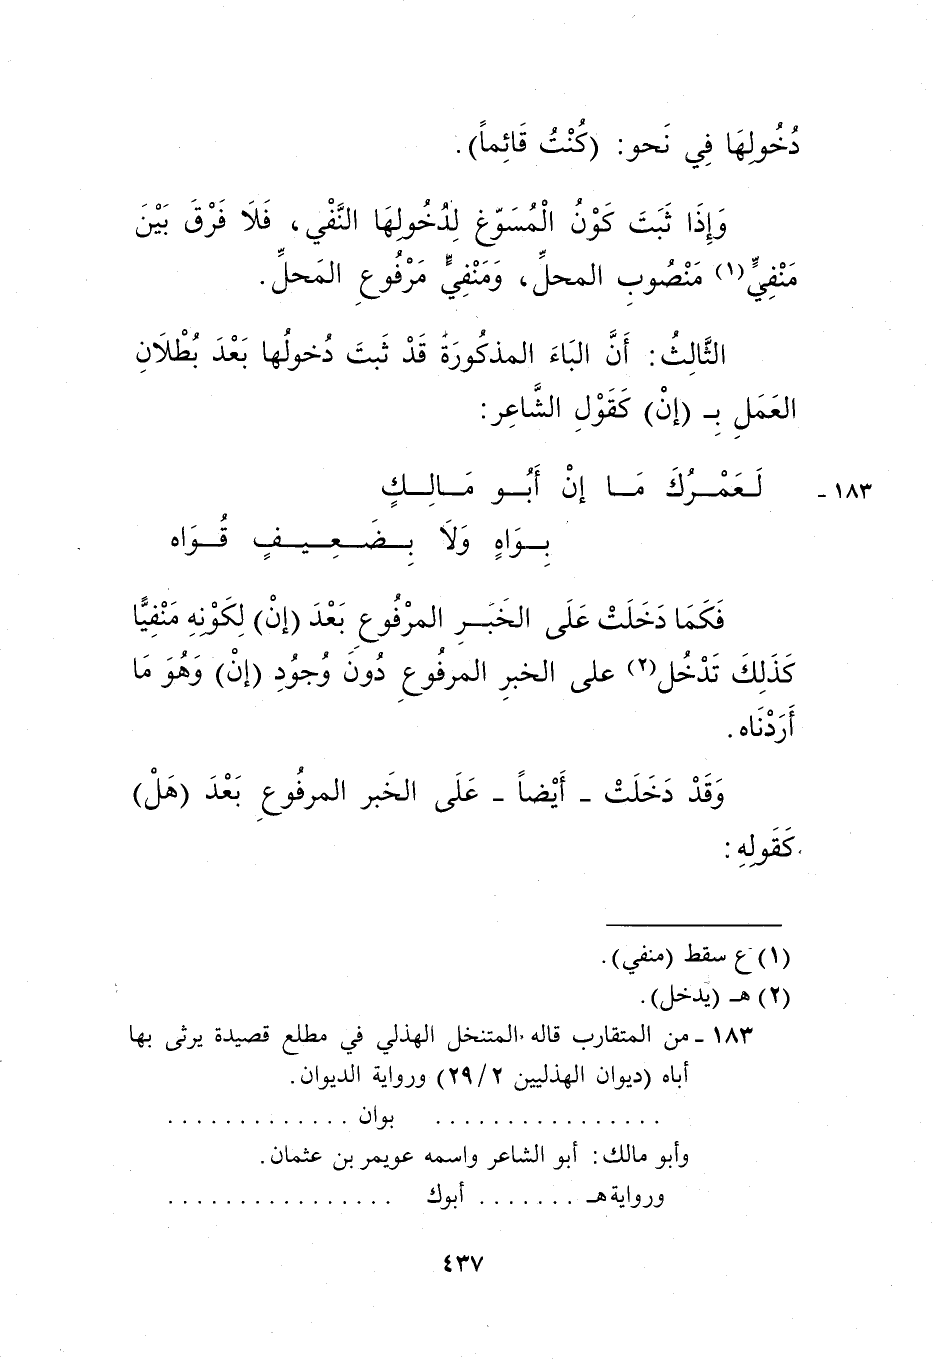 دُخُولِهَا فِي نَحو: (كُنْتُ قَائِماً).
وَإِذَا ثَبَتَ كَوْنُ الْمُسَوّغِ لِدُخُولِهَا النَّفْي، فَلَا فَرْقَ بَيْنَ
مَنْفِيٍّ(١) مَنْصُوبِ المحلِّ، وَمَنْفِيٍّ مَرْفُوعِ المَحلِّ.
الثَّالِثُ: أَنَّ البَاءَ المذكُورَةُ قَدْ ثَبتَ دُخولُها بَعْدَ بُطْلَانِ
العَمَلِ بِـ (إنْ) كَقَوْلِ الشَّاعِر:
١٨٣ - لَـعَمْـــرُكَ مَــا إنْ أَبُــو مَـالِــكٍ
بِــوَاهٍ وَلَا بِــضَــعِــيــفٍ قُــوَاه
فَكَمَا دَخَلَتْ عَلَى الخَبَــرِ المرْفُوعِ بَعْدَ (إنْ) لِكَوْنِهِ مَنْفِيًّا
كَذَلِكَ تَدْخُل(٢) على الخبرِ المرفُوعِ دُونَ وُجُوُدِ (إنْ) وَهُوَ مَا
أَرَدْنَاه.
وَقَدْ دَخَلَتْ - أَيْضاً - عَلَى الخَبر المرفُوعِ بَعْدَ (هَلْ)
كَقَولِهِ:
(١) ع سقط (منفي).
(٢) هـ (يدخل).
١٨٣ - من المتقارب قاله المتنخل الهذلي في مطلع قصيدة يرثى بها
أباه (ديوان الهذليين ٢/ ٢٩) ورواية الديوان.
. . . . . . . . . . . . . . . . بوان . . . . . . . . . . . . .
وأبو مالك: أبو الشاعر واسمه عويمر بن عثمان.
ورواية هـ . . . . . . . أبوك . . . . . . . . . . . . . . . .
٤٣٧